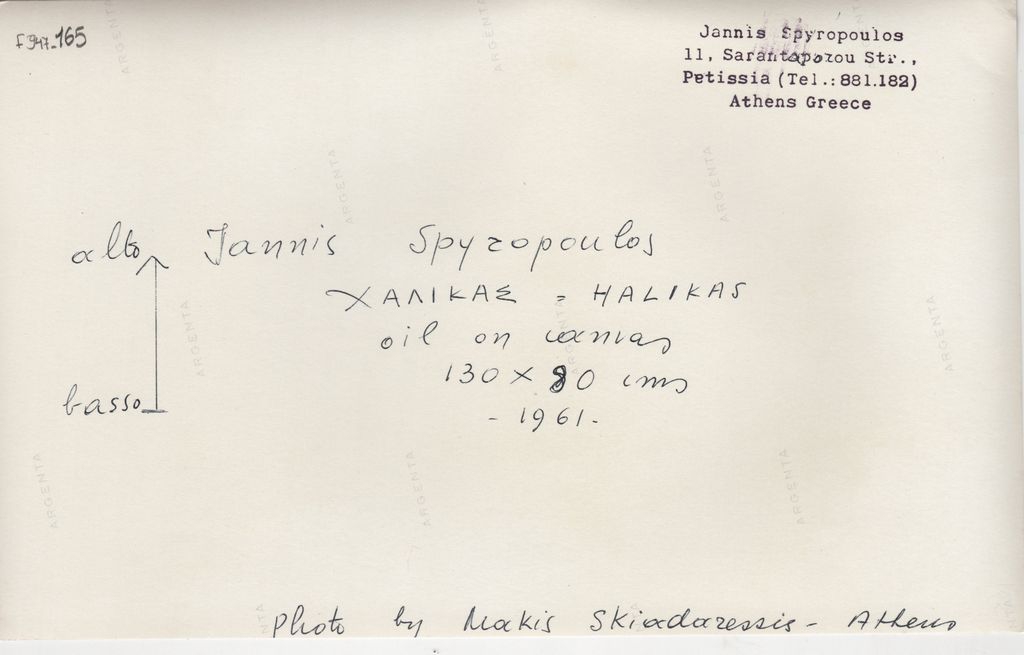 F347-165
Jannis Spyropoulos
11, Sarantaporou Str.,
Petissia (Tel.: 881.182)
Athens Greece
alto
Jannis Spyropoulos
ΧΑΛΙΚΑΣ = HALIKAS
oil on canvas
130 x 80 cms
basso
- 1961.
Photo by Makis Skiadaressis - Athens
ARGENTA
ARGENTA
ARGENTA
ARGENTA
ARGENTA
ARGENTA
ARGENTA
ARGENTA
ARGENTA
ARGENTA